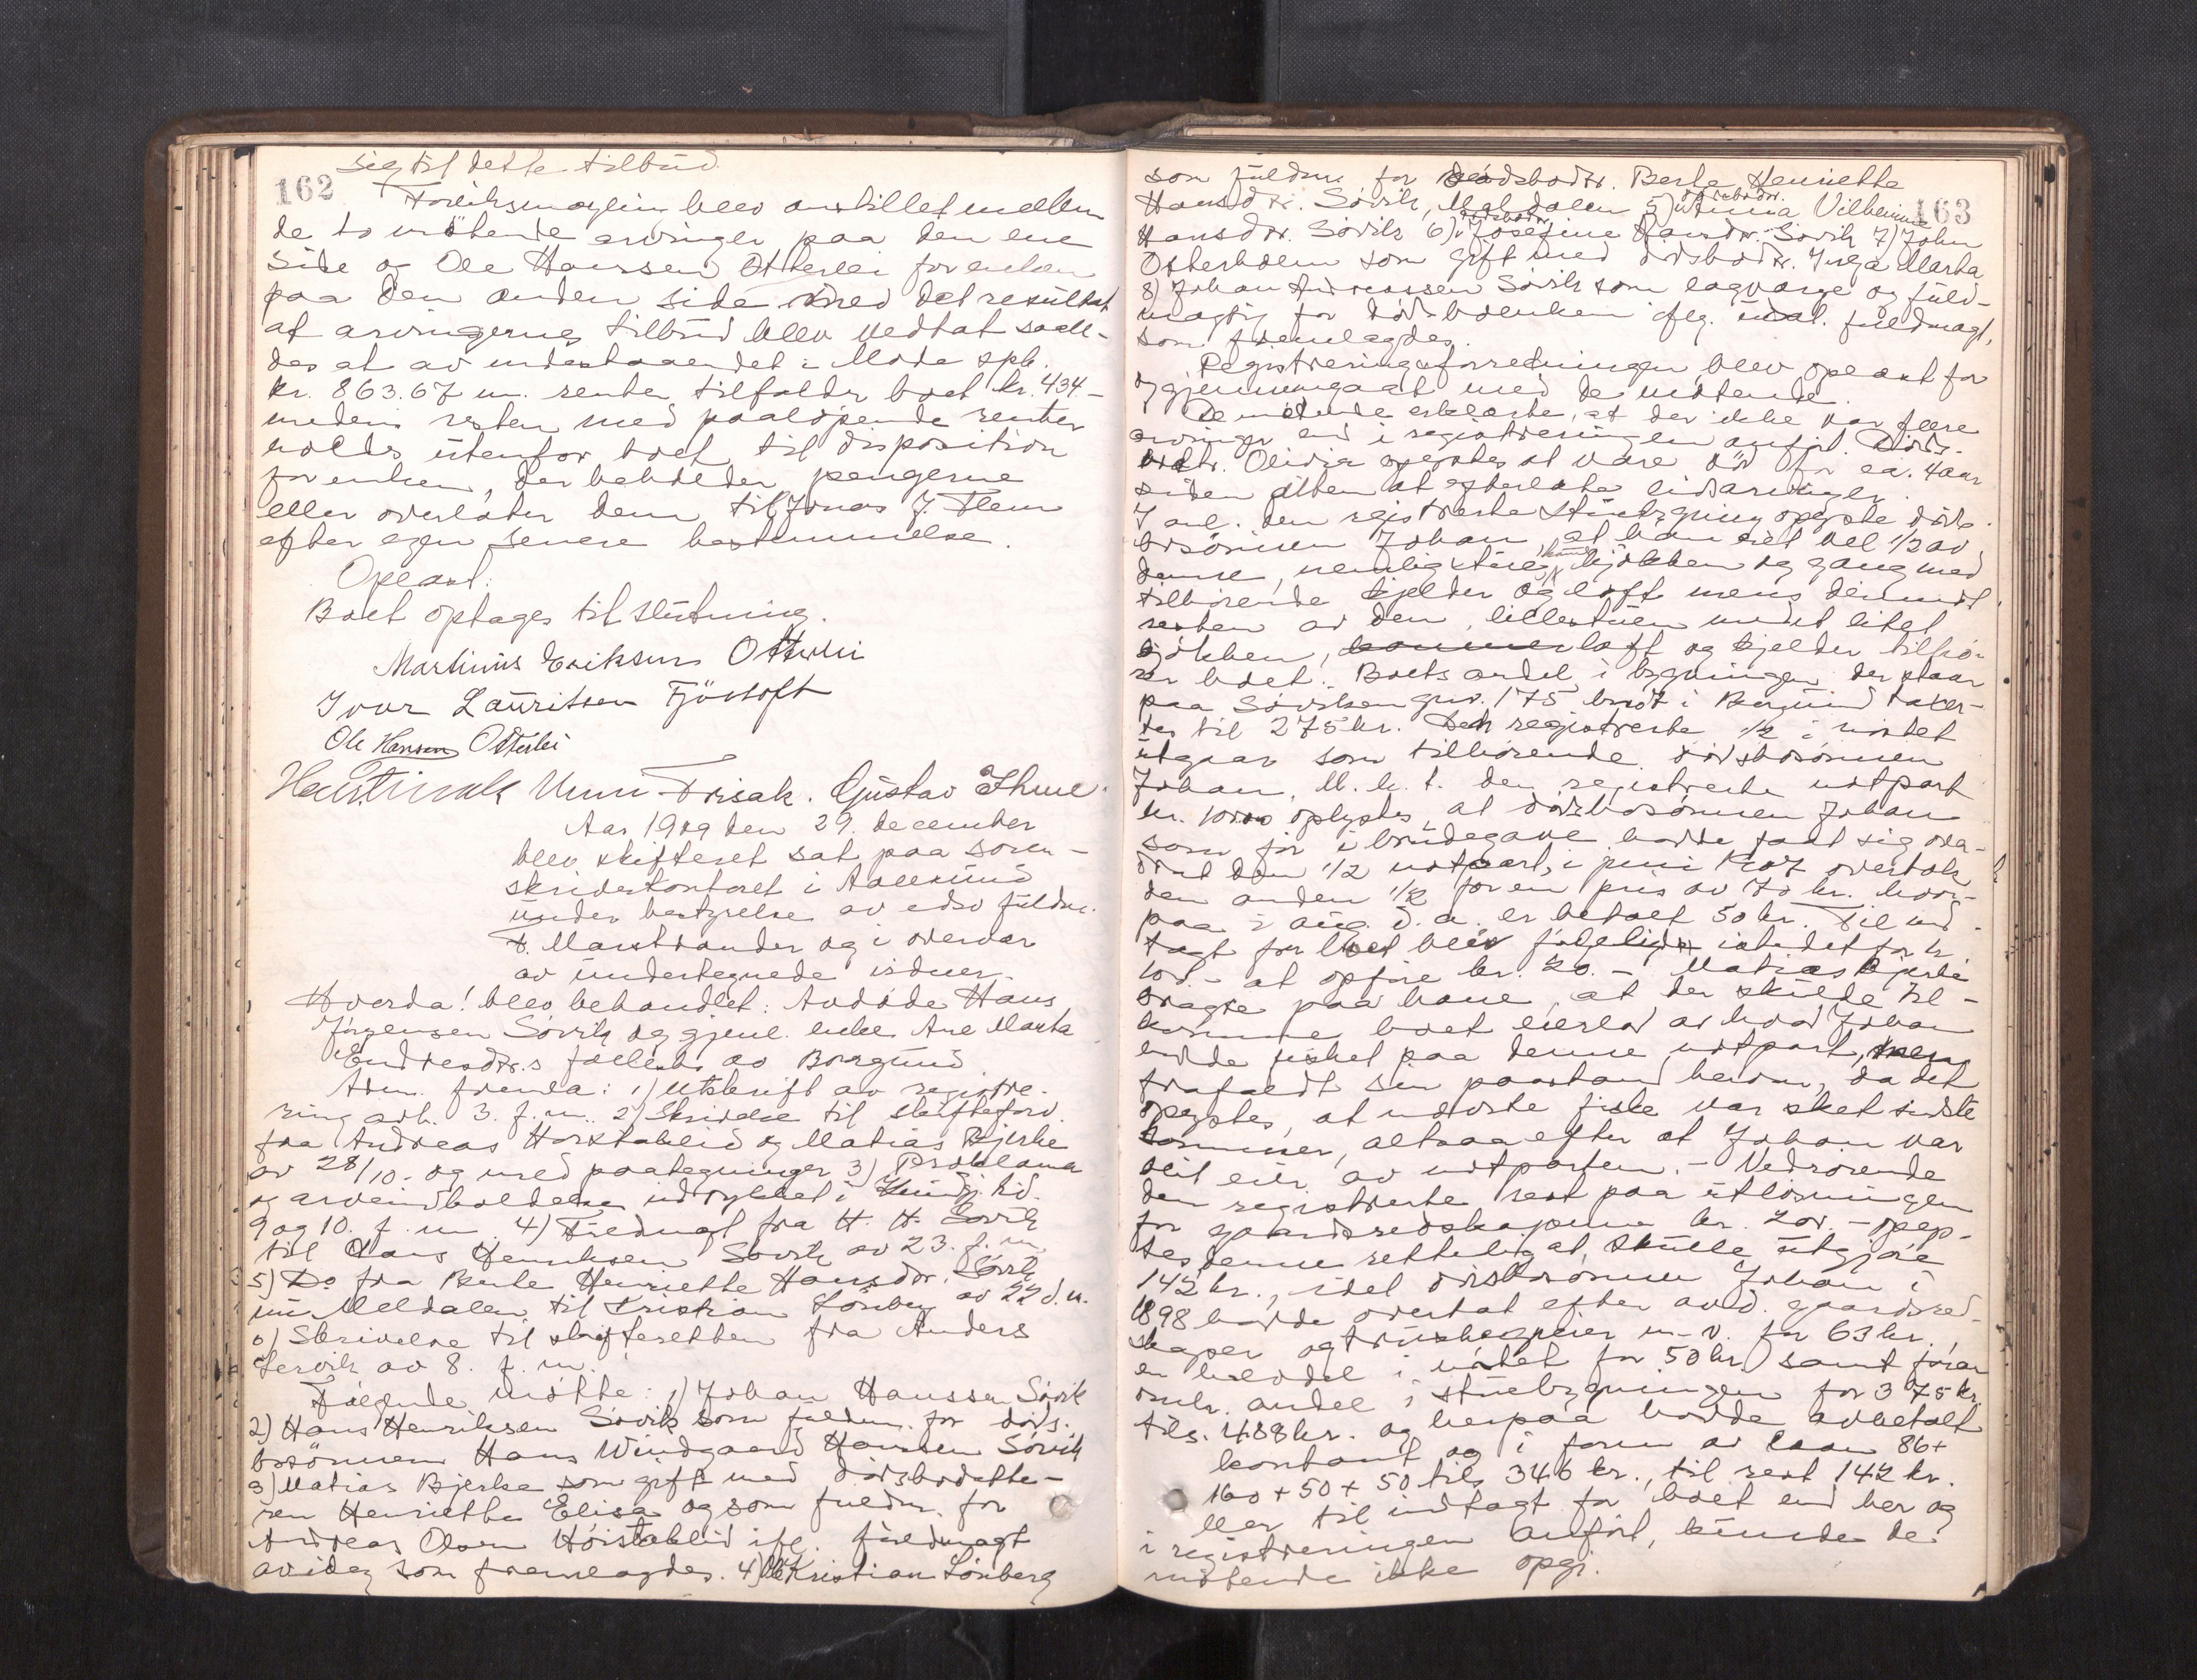 162
sig til dette tilbud.
Forliksmægling blev anstillet mellem
de to møtende arvinger paa den ene
side og Ole Hanssen Otterlei for enken
paa den anden side med det resultat
at arvingernes tilbud blev vedtat saale-
des at av indestaaendet i Molde spb.
kr. 863.67 m. renter tilfalder boet kr. 434-
medens resten med paaløpende renter
holdes utenfor boet til disposition
for enken, der beholder pengerne
eller overlater dem til Jonas J. Flem
efter egen senere bestemmelse.
Oplæst.
Boet optages til slutning.
Martinus Eriksen Otterlei
Ivar Lauritsen Fjørtoft
Ole Hansen Otterlei
Unni Frisak. Gustav Thue.
Aar 1909 den 29. december
blev skifteret sat paa soren-
skriverkontoret i Aalesund
under bestyrelse av edsv. fuldm.
F. Marstrander og i overvær
av undertegnede vidner.
Hvorda! blev behandlet: Avdøde Hans
Jørgensen Søvik og gjenl. enke Ane Marta
Endresdtr.s fællesbo av Borgund
Adm. fremla: 1) Utskrift av registre-
ring avh. 3. f. m. 2) Skrivelse til skifteforv.
fra Andreas Horstableid og Matias Bjerke
av 28/10. og med paategninger 3) Proklama
og arveindkaldelse indrykket i Kundg. tid.
9 og 10. f. m. 4) Fuldmagt fra H. H. Søvik
til Hans Henriksen Søvik av 23. f. m.
5) Do fra Berte Henriette Hansdtr. Søvik
Meldalen til Kristian Lönberg av 22 d. m.
6) Skrivelse til skifteretten fra Anders
Lervik av 8. f. m.
Følgende møtte: 1) Johan Hanssen Søvik
2) Hans Henriksen Søvik som fuldm. for døds-
bosønnen Hans Windgaard Hanssen Søvik
3) Matias Bjerke som gift med dødsbodatte-
ren Henriette Elisa og som fuldm. for
Andreas Olsen Horstableid ifl. fuldmagt
av idag som fremlagdes. 4) Kristian Lönberg
163
som fuldm. for dødsbodtr. Berte Henriette
Hansdtr. Søvik, Meldalen 5) dødsbodtr. Anna Vilhelmine
Hansdtr. Søvik 6) dødsbodtr. Josefine Hansdtr. Søvik 7) John
Osterholm som gift med dødsbodtr. Inga Marta
8) Johan Andreassen Søvik som lagværge og fuld-
mægtig for dødsboenken iflg. fuldmagt,
som fremlagdes.
Registreringsforretningen blev oplæst for
og gjennemgaat med de møtende.
De møtende erklærte, at der ikke var flere
arvinger end i registreringen anført. Døds-
bodtr. Olivia oplystes at være død for ca. 4 aar
siden uten at efterlate livsarvinger.
I anl. den registrerte stuebygning oplyste døds-
bosønnen Johan, at han eiet vel 1/2 av
denne, nemlig stue, kjøkken og gang med
tilhørende kjelder og loft mens derimot
resten av den, lillestuen med litet
kjøkken, loft og kjelder tilhø-
rer boet. Boets andel i bygningen der staar
paa Søvik gnr. 175 bnr 7 i Borgund takser-
tes til 275 kr. Den registrerte 1/2 i nøstet
utgaar som tilhørende dødsbosønnen
Johan. M. h. t. den registrerte notpart
kr. 100.00 oplystes, at dødsbosønnen Johan
som før i brudegave hadde faat sig over-
draget den 1/2 notpart, i juni 1907 overtok
den anden 1/2 for en pris av 70 kr. hvor-
paa i aug. d. a. er betalt 50 kr. Til ind-
tægt for boet blev følgelig istedetfor kr.
100.- at opføre kr. 20.- Matias Bjerke
gjorde paastand paa, at der skulde til-
komme boet eierlod av hvad Johan
hadde fisket paa denne notpart, men
frafaldt sin paastand herom, da det
oplystes, at nævnte fiske var sket sidste
sommer, altsaa efter at Johan var
blit eier av notparten. - Vedrørende
den registrerte rest paa utløsningen
for gaardsredskaperne kr. 200.- oplys-
tes denne retteligat skulle utgjøre
142 kr., idet dødsbosønnen Johan i
1898 hadde overtat efter avd. gaardsred-
skaper og m. v. for 63 kr.,
en halvdel i nøstet for 50 kr samt foran
omh. andel i stuebygningen for 375 kr
tils. 488 kr. og herpaa hadde avbetalt
kontant og i form av laan 86+
160+50+50 tils 346 kr., til rest 142 kr.
Mer til indtægt for boet end her og
i registreringen anført, kunde de
møtende ikke opgi.